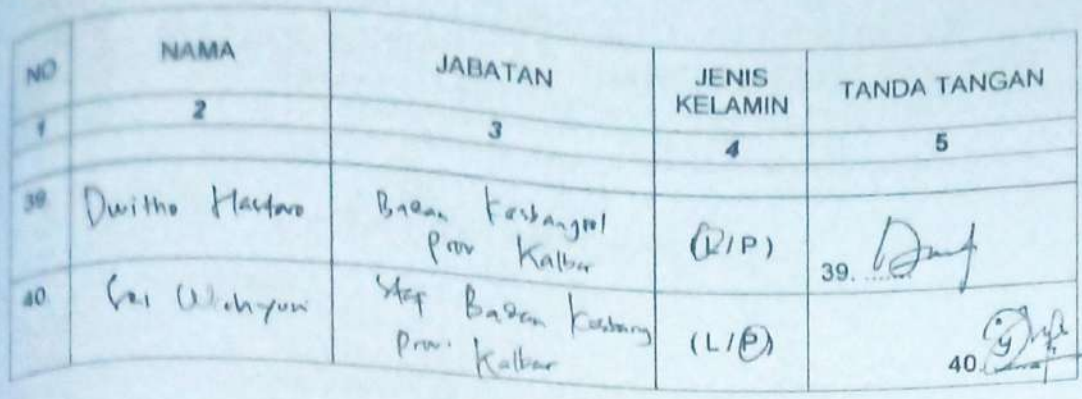 NO NAMA JABATAN JENIS KELAMIN TANDA TANGAN
1 2 3 4 5
39 Dwitho Hastoro Badan Kesbangpol (L/P) 39. ......
Prov Kalbar
40 Sri Wahyuni Staf Badan Kesbang (L/P) 40.
Prov. Kalbar